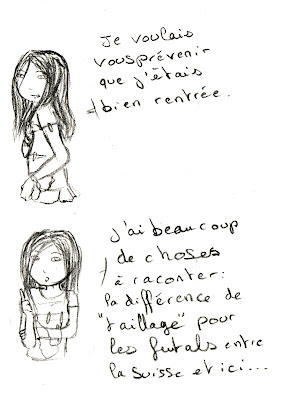 Je voulais
vous prévenir
que j'étais
bien rentrée.
j'ai beaucoup
de choses
à raconter:
la différence de
"taillage" pour
les futals entre
la Suisse et ici...